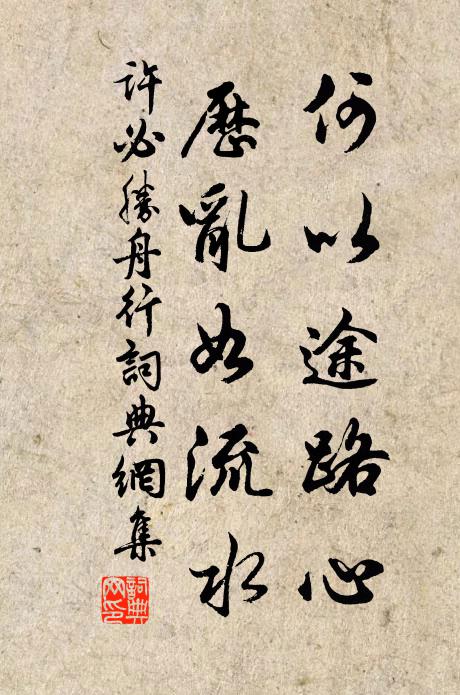 何以途路心
歷亂如流水
許必勝舟行詞典網集
詞典網印